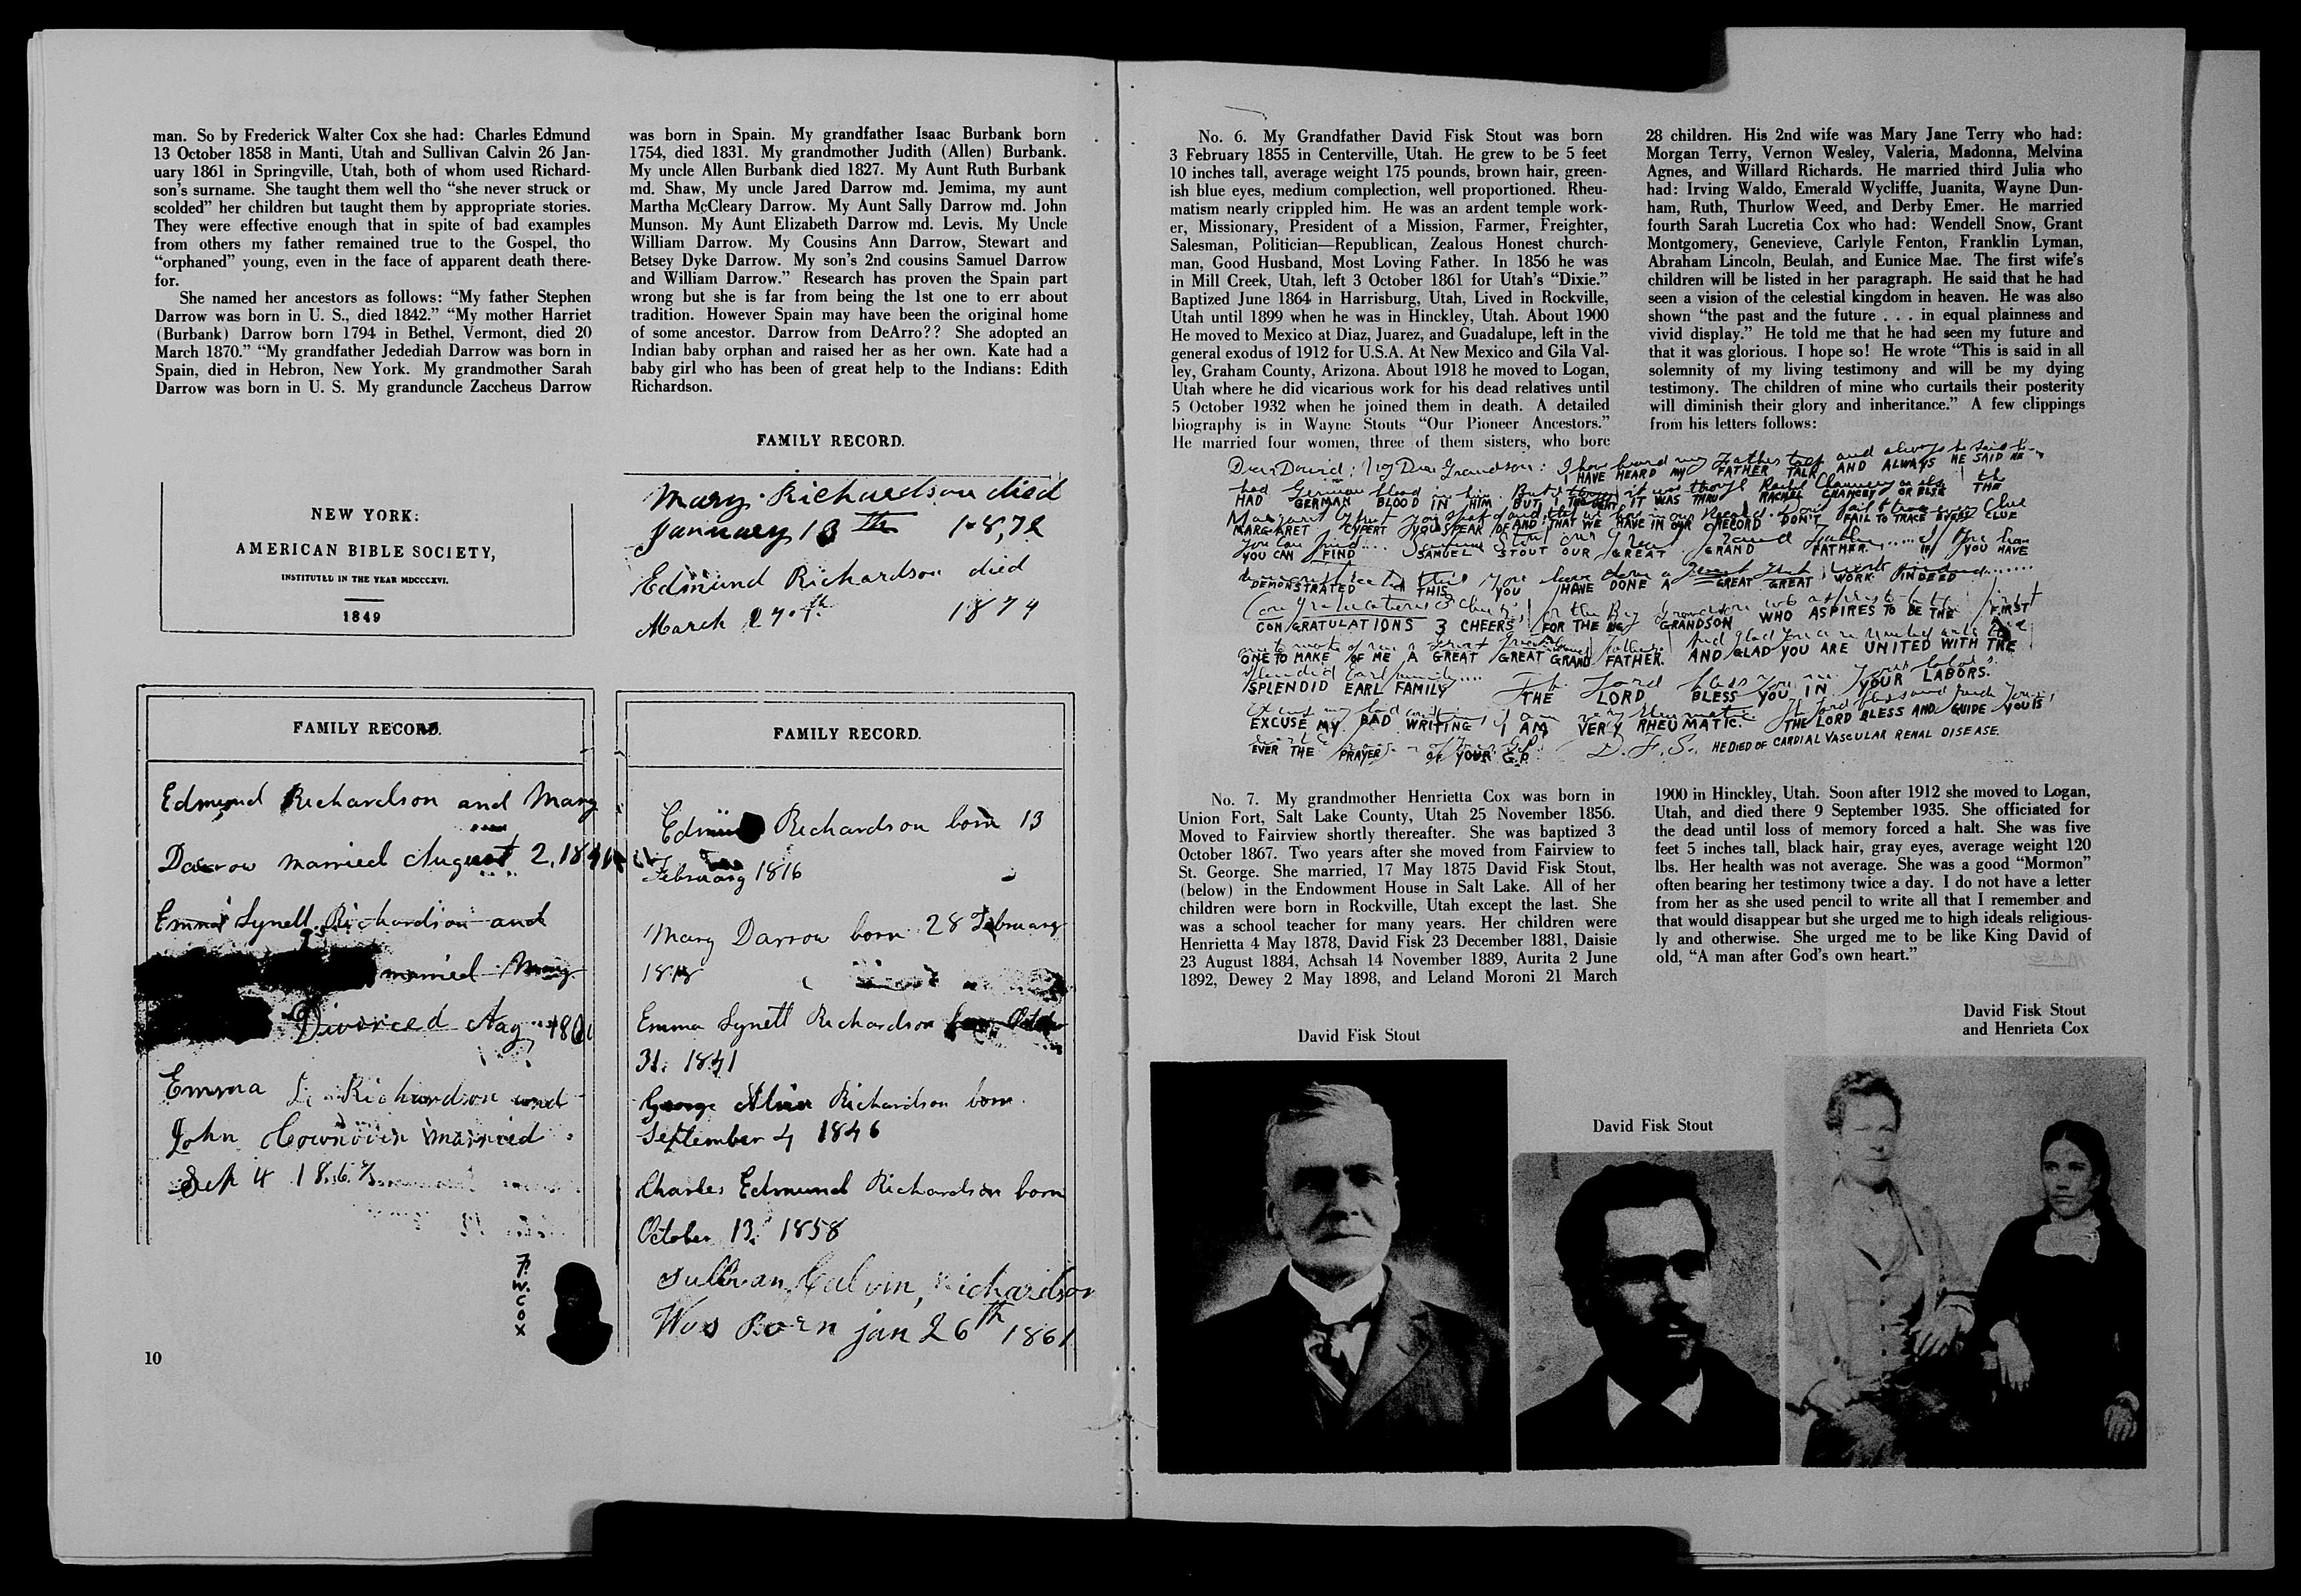 man. So by Frederick Walter Cox she had: Charles Edmund
13 October 1858 in Manti, Utah and Sullivan Calvin 26 Jan-
uary 1861 in Springville, Utah, both of whom used Richard-
son's surname. She taught them well tho "she never struck or
scolded" her children but taught them by appropriate stories.
They were effective enough that in spite of bad examples
from others my father remained true to the Gospel, tho
"orphaned" young, even in the face of apparent death there-
for.
She named her ancestors as follows: "My father Stephen
Darrow was born in U. S., died 1842." "My mother Harriet
(Burbank) Darrow born 1794 in Bethel, Vermont, died 20
March 1870." "My grandfather Jedediah Darrow was born in
Spain, died in Hebron, New York. My grandmother Sarah
Darrow was born in U. S. My granduncle Zaccheus Darrow
was born in Spain. My grandfather Isaac Burbank born
1754, died 1831. My grandmother Judith (Allen) Burbank.
My uncle Allen Burbank died 1827. My Aunt Ruth Burbank
md. Shaw, My uncle Jared Darrow md. Jemima, my aunt
Martha McCleary Darrow. My Aunt Sally Darrow md. John
Munson. My Aunt Elizabeth Darrow md. Levis. My Uncle
William Darrow. My Cousins Ann Darrow, Stewart and
Betsey Dyke Darrow. My son's 2nd cousins Samuel Darrow
and William Darrow." Research has proven the Spain part
wrong but she is far from being the 1st one to err about
tradition. However Spain may have been the original home
of some ancestor. Darrow from DeArro?? She adopted an
Indian baby orphan and raised her as her own. Kate had a
baby girl who has been of great help to the Indians: Edith
Richardson.
NEW YORK:
AMERICAN BIBLE SOCIETY,
INSTITUTED IN THE YEAR MDCCCXVI.
1849
FAMILY RECORD.
Mary Richardson died
January 13th 1872
Edmund Richardson died
March 27th 1874
FAMILY RECORD.
Edmund Richardson and Mary
Darrow married August 2, 184
Emma Lynett Richardson and
married Mary
Divorced Aug 186
Emma L. Richardson and
John married
Sep 4 186
F.
W.
C
O
X
10
FAMILY RECORD.
Edmund Richardson born 13
February 1816
Mary Darrow born 28 February
1818
Emma Lynett Richardson born October
31. 1841
George Richardson born
September 4 1846
Charles Edmund Richardson born
October 13. 1858
Sullivan Calvin, Richardson
Was Born jan 26th 1861
No. 6. My Grandfather David Fisk Stout was born
3 February 1855 in Centerville, Utah. He grew to be 5 feet
10 inches tall, average weight 175 pounds, brown hair, green-
ish blue eyes, medium complection, well proportioned. Rheu-
matism nearly crippled him. He was an ardent temple work-
er, Missionary, President of a Mission, Farmer, Freighter,
Salesman, Politician—Republican, Zealous Honest church-
man, Good Husband, Most Loving Father. In 1856 he was
in Mill Creek, Utah, left 3 October 1861 for Utah's "Dixie."
Baptized June 1864 in Harrisburg, Utah, Lived in Rockville,
Utah until 1899 when he was in Hinckley, Utah. About 1900
He moved to Mexico at Diaz, Juarez, and Guadalupe, left in the
general exodus of 1912 for U.S.A. At New Mexico and Gila Val-
ley, Graham County, Arizona. About 1918 he moved to Logan,
Utah where he did vicarious work for his dead relatives until
5 October 1932 when he joined them in death. A detailed
biography is in Wayne Stouts "Our Pioneer Ancestors."
He married four women, three of them sisters, who bore
28 children. His 2nd wife was Mary Jane Terry who had:
Morgan Terry, Vernon Wesley, Valeria, Madonna, Melvina
Agnes, and Willard Richards. He married third Julia who
had: Irving Waldo, Emerald Wycliffe, Juanita, Wayne Dun-
ham, Ruth, Thurlow Weed, and Derby Emer. He married
fourth Sarah Lucretia Cox who had: Wendell Snow, Grant
Montgomery, Genevieve, Carlyle Fenton, Franklin Lyman,
Abraham Lincoln, Beulah, and Eunice Mae. The first wife's
children will be listed in her paragraph. He said that he had
seen a vision of the celestial kingdom in heaven. He was also
shown "the past and the future . . . in equal plainness and
vivid display." He told me that he had seen my future and
that it was glorious. I hope so! He wrote "This is said in all
solemnity of my living testimony and will be my dying
testimony. The children of mine who curtails their posterity
will diminish their glory and inheritance." A few clippings
from his letters follows:
Dear David: My Dear Grandson: I have heard my Father talk and always he said he
I HAVE HEARD MY FATHER TALK AND ALWAYS HE SAID HE
had German blood in him. But I thought it was through Rachel Chancey or else the
HAD GERMAN BLOOD IN HIM BUT I THOUGHT IT WAS THRU RACHEL CHANCEY OR ELSE THE
MARGARET CYPERT YOU SPEAK OF AND THAT WE HAVE IN OUR RECORD DON'T FAIL TO TRACE EVERY CLUE
YOU CAN FIND SAMUEL STOUT OUR GREAT GRAND FATHER. IF YOU HAVE
DEMONSTRATED THIS YOU HAVE DONE A GREAT GREAT WORK INDEED
CONGRATULATIONS 3 CHEERS FOR THE BIG GRANDSON WHO ASPIRES TO BE THE FIRST
ONE TO MAKE OF ME A GREAT GREAT GRAND FATHER. AND GLAD YOU ARE UNITED WITH THE
SPLENDID EARL FAMILY THE LORD BLESS YOU IN YOUR LABORS.
EXCUSE MY BAD WRITING I AM VERY RHEUMATIC. THE LORD BLESS AND GUIDE YOU IS
EVER THE PRAYER OF YOUR G.P. D. F. S. HE DIED OF CARDIAL VASCULAR RENAL DISEASE.
No. 7. My grandmother Henrietta Cox was born in
Union Fort, Salt Lake County, Utah 25 November 1856.
Moved to Fairview shortly thereafter. She was baptized 3
October 1867. Two years after she moved from Fairview to
St. George. She married, 17 May 1875 David Fisk Stout,
(below) in the Endowment House in Salt Lake. All of her
children were born in Rockville, Utah except the last. She
was a school teacher for many years. Her children were
Henrietta 4 May 1878, David Fisk 23 December 1881, Daisie
23 August 1884, Achsah 14 November 1889, Aurita 2 June
1892, Dewey 2 May 1898, and Leland Moroni 21 March
1900 in Hinckley, Utah. Soon after 1912 she moved to Logan,
Utah, and died there 9 September 1935. She officiated for
the dead until loss of memory forced a halt. She was five
feet 5 inches tall, black hair, gray eyes, average weight 120
lbs. Her health was not average. She was a good "Mormon"
often bearing her testimony twice a day. I do not have a letter
from her as she used pencil to write all that I remember and
that would disappear but she urged me to high ideals religious-
ly and otherwise. She urged me to be like King David of
old, "A man after God's own heart."
David Fisk Stout
David Fisk Stout
David Fisk Stout
and Henrieta Cox